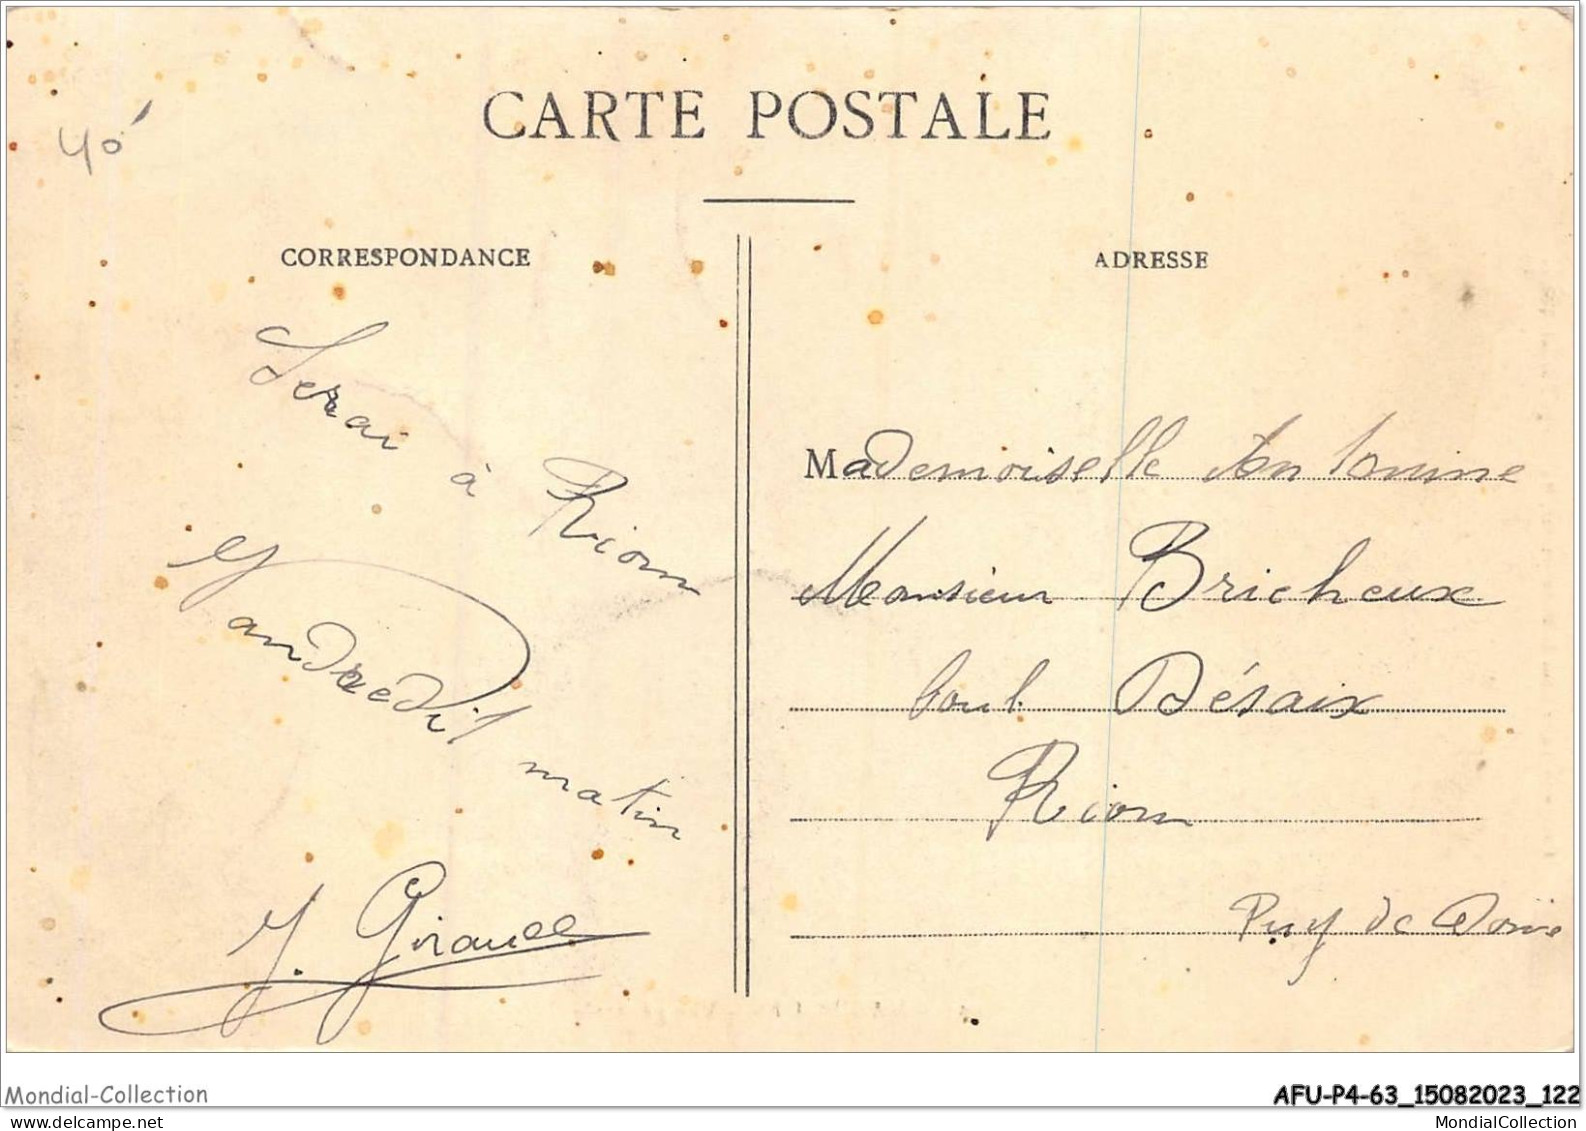 CARTE POSTALE
40
CORRESPONDANCE
ADRESSE
Serai à Riom
Vandredi matin
J. Giraud
Mademoiselle Antonine
Monsieur Bricheux
boul. Désaix
Riom
Puy de Dôme
Mondial-Collection
AFU-P4-63_15082023_122
www.delcampe.net
MondialCollection